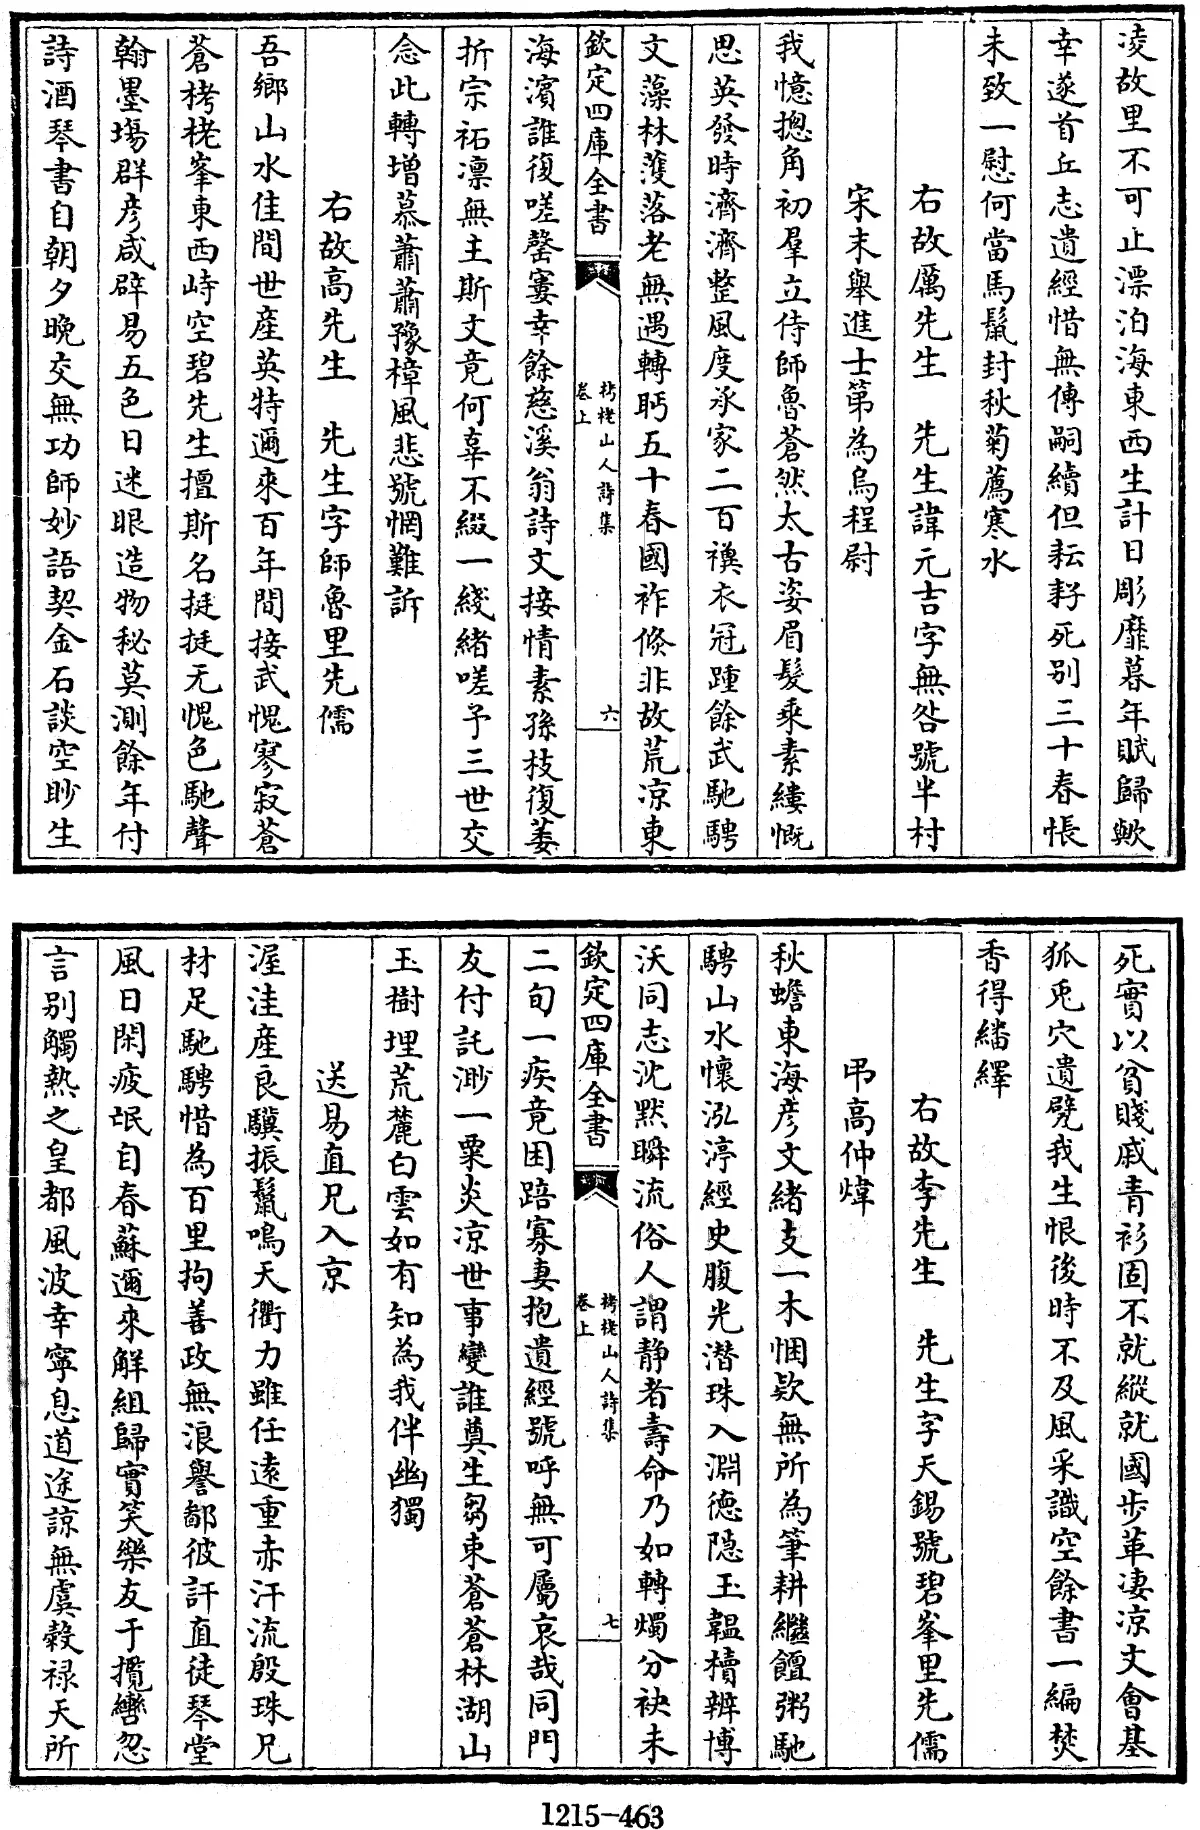 凌故里不可止漂泊海東西生計日彫靡暮年賦歸歟
幸遂首丘志遺經惜無傳嗣續但耘耔死别三十春悵
未致一慰何當馬鬛封秋菊薦寒水
右故厲先生　先生諱元吉字無咎號半村
宋末舉進士第為烏程尉
我憶摠角初羣立侍師魯蒼然太古姿眉髮乘素縷慨
思英發時濟濟整風度承家二百禩衣冠踵餘武馳騁
文藻林蒦落老無遇轉眄五十春國祚倏非故荒凉東
欽定四庫全書
栲栳山人詩集
卷上
六
海濱誰復嗟罄寠幸餘慈溪翁詩文接情素孫枝復萎
折宗祏凛無主斯文竟何辜不綴一綫緒嗟予三世交
念此轉增慕蕭蕭豫樟風悲號惘難訴
右故高先生　先生字師魯里先儒
吾鄉山水佳間世産英特邇來百年間接武愧寥寂蒼
蒼栲栳峯東西峙空碧先生擅斯名挺挺无愧色馳聲
翰墨塲群彦咸辟易五色日迷眼造物秘莫測餘年付
詩酒琴書自朝夕晚交無功師妙語契金石談空眇生
死實以貧賤戚青衫固不就縱就國步革凄凉文會基
狐兎穴遺甓我生恨後時不及風采識空餘書一編焚
香得繙繹
右故李先生　先生字天錫號碧峯里先儒
弔高仲煒
秋蟾東海彦文緒支一木悃欵無所為筆耕繼饘粥馳
騁山水懷泓渟經史腹光潜珠入淵德隠玉韞櫝辨博
沃同志沈黙瞬流俗人謂静者壽命乃如轉燭分袂未
欽定四庫全書
栲栳山人詩集
卷上
七
二旬一疾竟困踣寡妻抱遺經號呼無可屬哀哉同門
友付託渺一粟炎凉世事變誰奠生芻束蒼蒼林湖山
玉樹埋荒麓白雲如有知為我伴幽獨
送易直兄入京
渥洼産良驥振鬛鳴天衢力雖任逺重赤汗流殷珠兄
材足馳騁惜為百里拘善政無浪譽鄙彼訐直徒琴堂
風日閑疲氓自春蘇邇來解組歸實笑樂友于攬轡忽
言别觸熱之皇都風波幸寧息道途諒無虞穀禄天所
1215-463